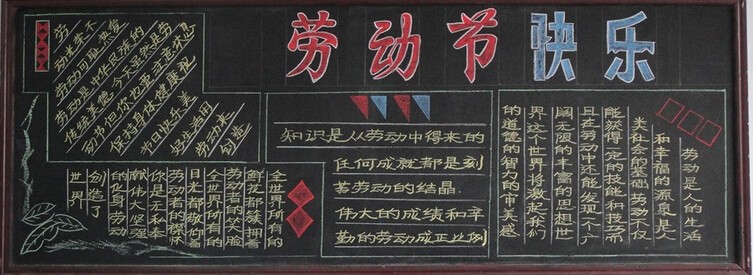 劳动节快乐
劳
动光荣不
劳动可耻热爱
劳动是中华民族的
传统美德今天虽然是劳
动节但你也要注意休息
保持身体健康祝
节日快乐美
好生活用
劳动来
创造
全世界所有的
鲜花都簇拥着
劳动者的笑脸
全世界所有的
目光都敬仰着
劳动者的襟怀
你是无私奉
献伟大坚强
的化身劳动
创造了
世界
知识是从劳动中得来的
任何成就都是刻
苦劳动的结晶.
伟大的成绩和辛
勤的劳动成正比例
劳动是人的生活
和幸福的源泉是人
类社会的基础劳动不仅
能获得一定的技能和技巧而
且在劳动中还能发现一个广
阔无限的丰富的思想世
界这个世界将激起我们
的道德的智力的审美感